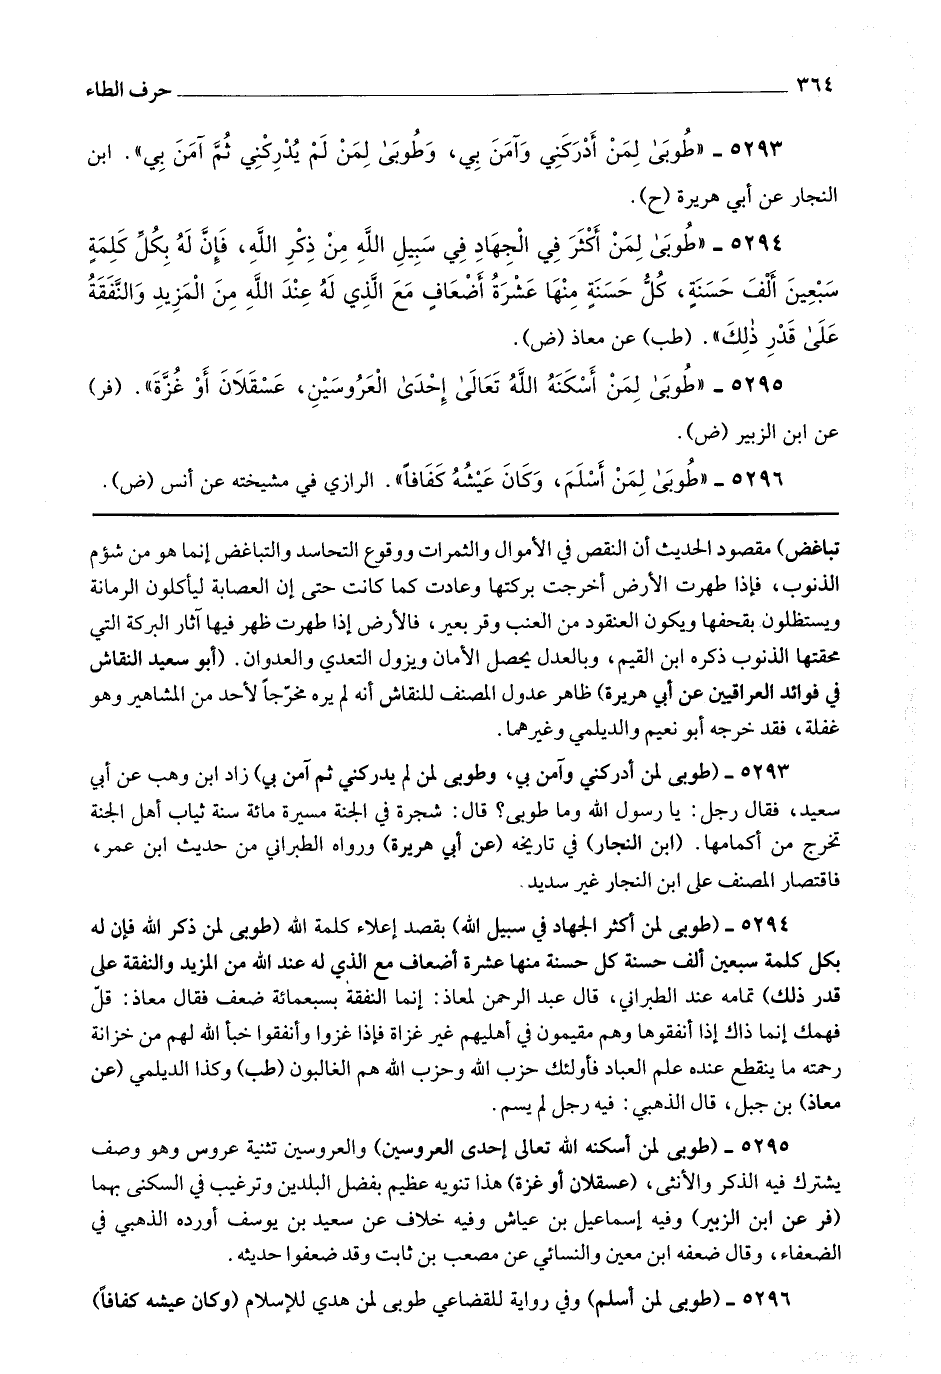 ٣٦٤ ــــــــ حرف الطاء
٥٢٩٣ ـ «طُوبَىٰ لِمَنْ أَدْرَكَنِي وَآمَنَ بِي، وَطُوبَىٰ لِمَنْ لَمْ يُدْرِكْنِي ثُمَّ آمَنَ بِي». ابن
النجار عن أبي هريرة (ح).
٥٢٩٤ ـ «طُوبَىٰ لِمَنْ أَكْثَرَ فِي الْجِهَادِ فِي سَبِيلِ اللَّهِ مِنْ ذِكْرِ اللَّهِ، فَإِنَّ لَهُ بِكُلِّ كَلِمَةٍ
سَبْعِينَ أَلْفَ حَسَنَةٍ، كُلُّ حَسَنَةٍ مِنْهَا عَشْرَةُ أَضْعَافٍ مَعَ الَّذِي لَهُ عِنْدَ اللَّهِ مِنَ الْمَزِيدِ وَالنَّفَقَةُ
عَلَىٰ قَدْرِ ذٰلِكَ». (طب) عن معاذ (ض).
٥٢٩٥ ـ «طُوبَىٰ لِمَنْ أَسْكَنَهُ اللَّهُ تَعَالَىٰ إِحْدَىٰ الْعَرُوسَيْنِ، عَسْقَلَانَ أَوْ غُزَّةَ». (فر)
عن ابن الزبير (ض).
٥٢٩٦ ـ «طُوبَىٰ لِمَنْ أَسْلَمَ، وَكَانَ عَيْشُهُ كَفَافاً». الرازي في مشيخته عن أنس (ض).
تباغض) مقصود الحديث أن النقص في الأموال والثمرات ووقوع التحاسد والتباغض إنما هو من شؤم
الذنوب، فإذا طهرت الأرض أخرجت بركتها وعادت كما كانت حتى إن العصابة ليأكلون الرمانة
ويستظلون بقحفها ويكون العنقود من العنب وقر بعير، فالأرض إذا طهرت ظهر فيها آثار البركة التي
محقتها الذنوب ذكره ابن القيم، وبالعدل يحصل الأمان ويزول التعدي والعدوان. (أبو سعيد النقاش
في فوائد العراقيين عن أبي هريرة) ظاهر عدول المصنف للنقاش أنه لم يره مخرّجاً لأحد من المشاهير وهو
غفلة، فقد خرجه أبو نعيم والديلمي وغيرهما.
٥٢٩٣ ـ (طوبى لمن أدركني وآمن بي، وطوبى لمن لم يدركني ثم آمن بي) زاد ابن وهب عن أبي
سعيد، فقال رجل: يا رسول الله وما طوبى؟ قال: شجرة في الجنة مسيرة مائة سنة ثياب أهل الجنة
تخرج من أكمامها. (ابن النجار) في تاريخه (عن أبي هريرة) ورواه الطبراني من حديث ابن عمر،
فاقتصار المصنف على ابن النجار غير سديد.
٥٢٩٤ ـ (طوبى لمن أكثر الجهاد في سبيل الله) بقصد إعلاء كلمة الله (طوبى لمن ذكر الله فإن له
بكل كلمة سبعين ألف حسنة كل حسنة منها عشرة أضعاف مع الذي له عند الله من المزيد والنفقة على
قدر ذلك) تمامه عند الطبراني، قال عبد الرحمن لمعاذ: إنما النفقة بسبعمائة ضعف فقال معاذ: قلّ
فهمك إنما ذاك إذا أنفقوها وهم مقيمون في أهليهم غير غزاة فإذا غزوا وأنفقوا خبأ الله لهم من خزانة
رحمته ما ينقطع عنده علم العباد فأولئك حزب الله وحزب الله هم الغالبون (طب) وكذا الديلمي (عن
معاذ) بن جبل، قال الذهبي: فيه رجل لم يسم.
٥٢٩٥ ـ (طوبى لمن أسكنه الله تعالى إحدى العروسين) والعروسين تثنية عروس وهو وصف
يشترك فيه الذكر والأنثى، (عسقلان أو غزة) هذا تنويه عظيم بفضل البلدين وترغيب في السكنى بهما
(فر عن ابن الزبير) وفيه إسماعيل بن عياش وفيه خلاف عن سعيد بن يوسف أورده الذهبي في
الضعفاء، وقال ضعفه ابن معين والنسائي عن مصعب بن ثابت وقد ضعفوا حديثه.
٥٢٩٦ ـ (طوبى لمن أسلم) وفي رواية للقضاعي طوبى لمن هدي للإسلام (وكان عيشه كفافاً)